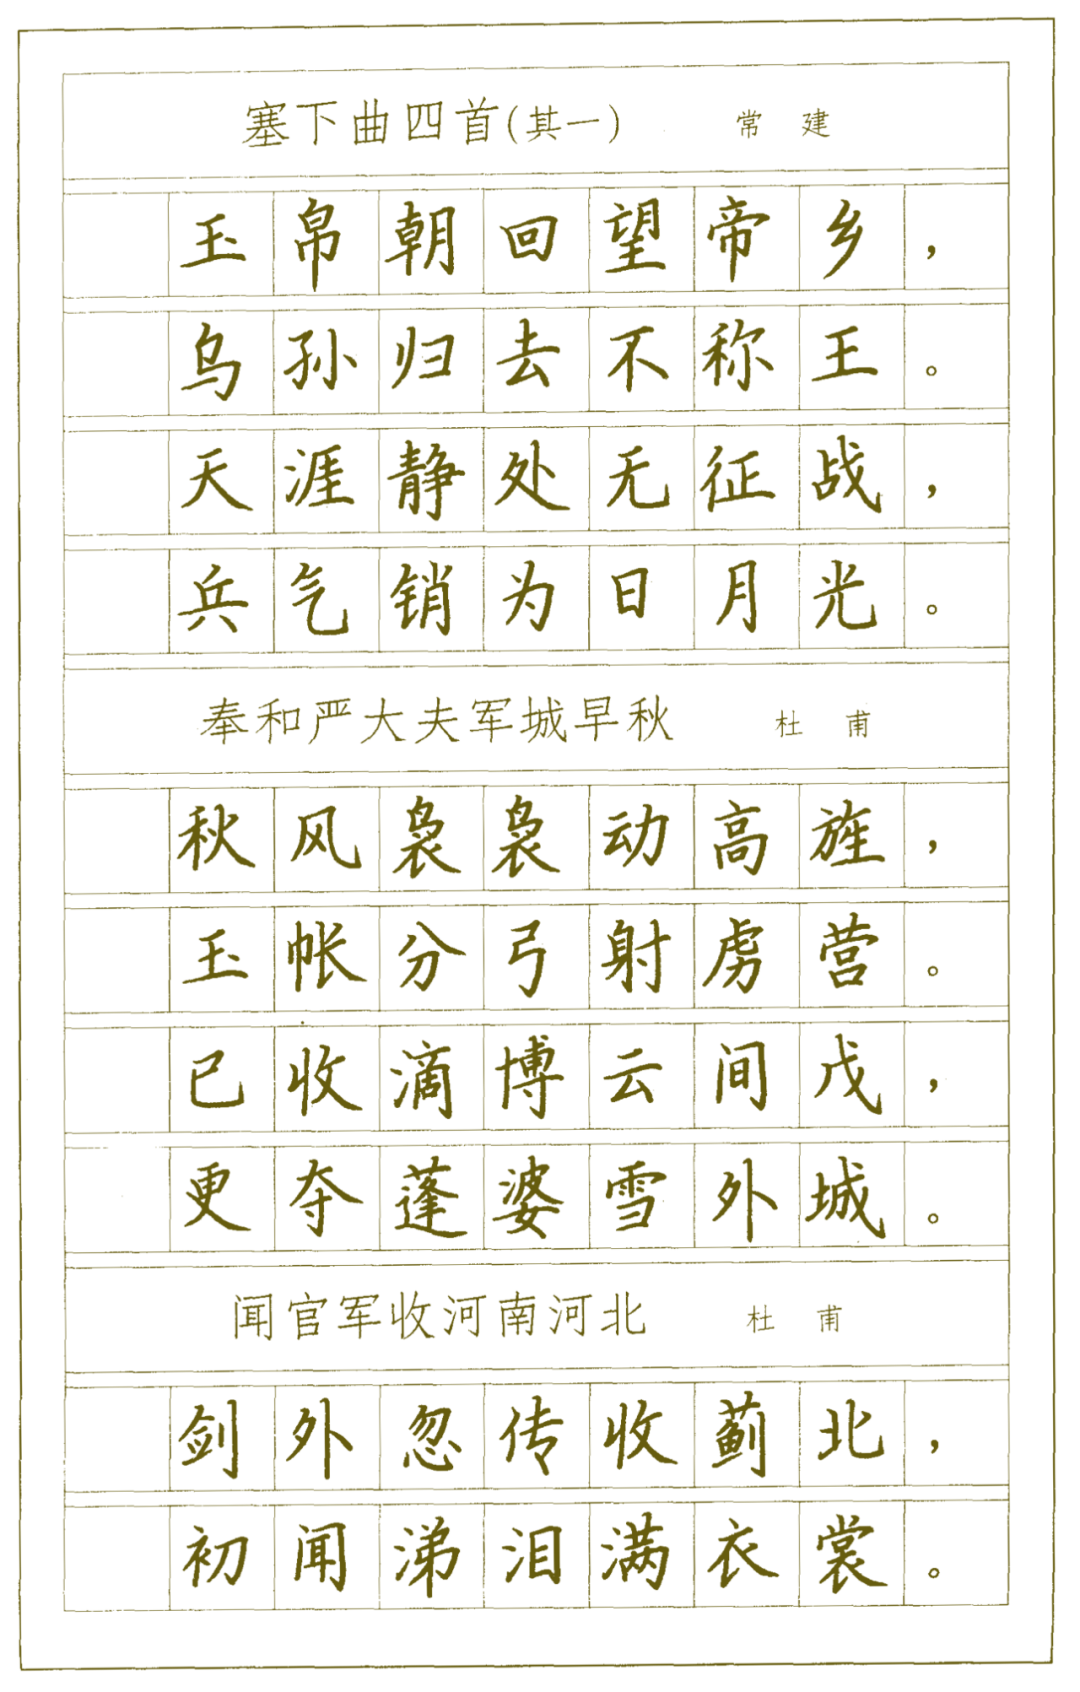 塞下曲四首(其一) 常建
玉帛朝回望帝乡，
乌孙归去不称王。
天涯静处无征战，
兵气销为日月光。
奉和严大夫军城早秋 杜甫
秋风袅袅动高旌，
玉帐分弓射虏营。
已收滴博云间戍，
更夺蓬婆雪外城。
闻官军收河南河北 杜甫
剑外忽传收蓟北，
初闻涕泪满衣裳。